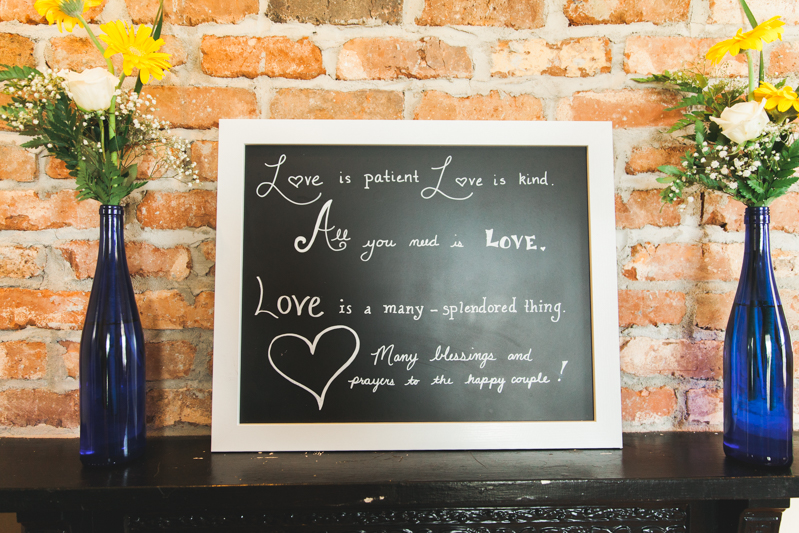 Love is patient Love is kind.
All you need is LOVE.
Love is a many-splendored thing.
Many blessings and
prayers to the happy couple!